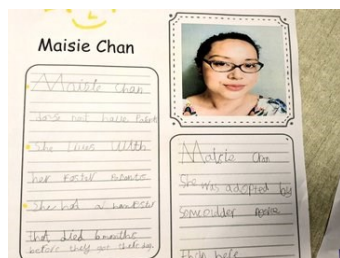 Maisie Chan
Maisie Chan
does not have Parents
She lives With
her Foster Parents
She had a hamster
that died 6 months
before they got their dog
Maisie Chan
She was adopted by
older people
than here